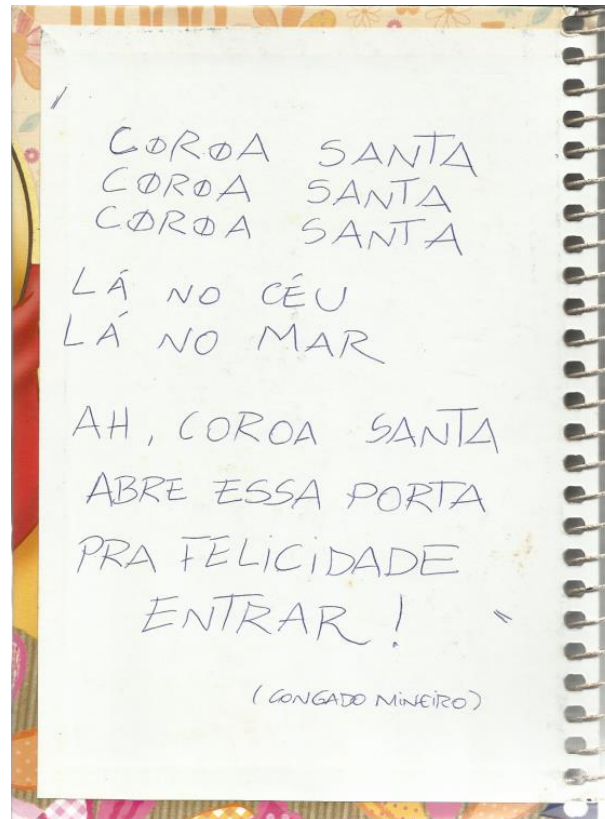 "
COROA SANTA
COROA SANTA
COROA SANTA
LÁ NO CÉU
LÁ NO MAR
AH, COROA SANTA
ABRE ESSA PORTA
PRA FELICIDADE
ENTRAR! "
(CONGADO MINEIRO)